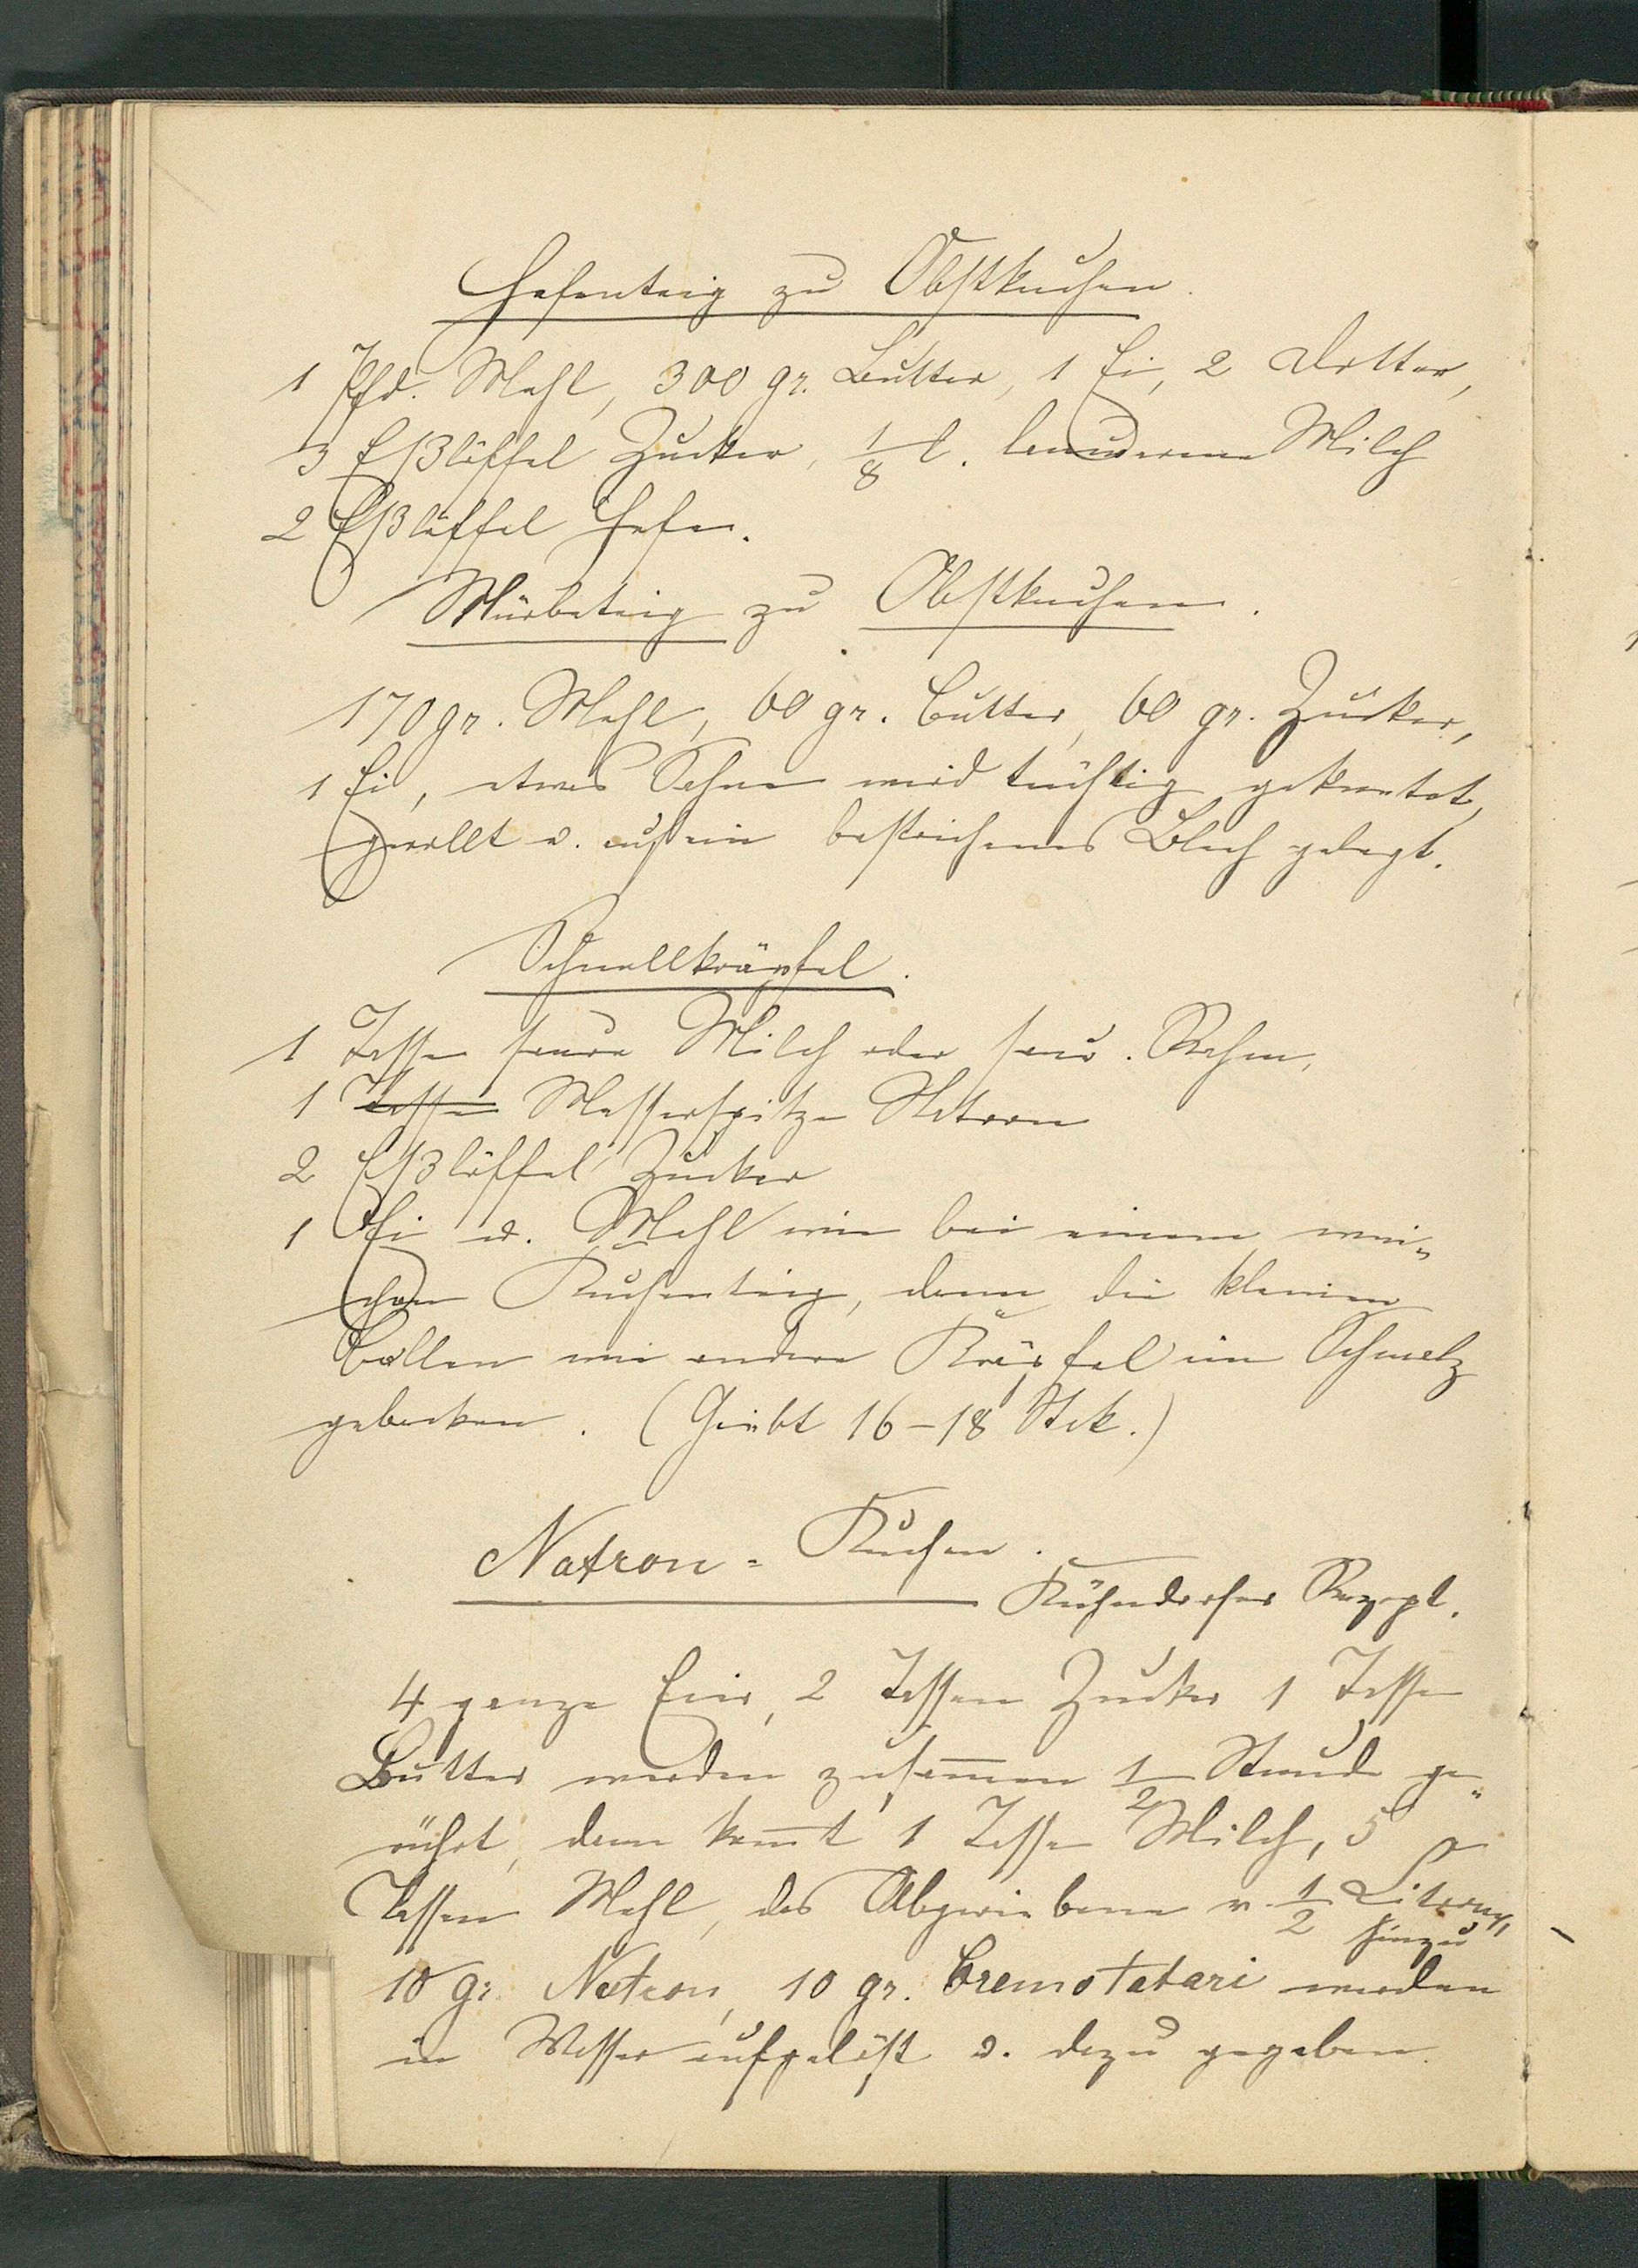 Hefenteig zu Obstkuchen.
1 Pfd. Mehl, 300 gr. Butter, 1 Ei, 2 Dotter,
3 Eßlöffel Zucker, 1/8 l. Milch
2 Eßlöffel Hefe.
Mürbeteig zu Obstkuchen.
170 gr. Mehl, 60 gr. Butter, 60 gr. Zucker,
1 Ei, etwas Rahm wird tüchtig geknetet,
gerollt u. auf ein bestrichenes Blech gelegt.
Schnellkräpfel.
1 Tasse saure Milch oder saur. Rahm,
1 Tasse Messerspitze Natron
2 Eßlöffel Zucker
1 Ei u. Mehl wie bei einem wei-
chen Kuchenteig, dann die kleinen
Ballen wie andere Kräpfel im Schmalz
gebacken. (Giebt 16-18 Stck.)
Natron-Kuchen.
Kühndorfer Rezept.
4 ganze Eier, 2 Tassen Zucker 1 Tasse
Butter werden zusammen 1/2 Stunde ge-
rührt, dann kommt 1 Tasse Milch, 5
Tassen Mehl, das Abgeriebene v. 1/2 Citrone,
hinzu
10 gr. Natron, 10 gr. Cremotatari werden
in Wasser aufgelöst u. dazu gegeben.